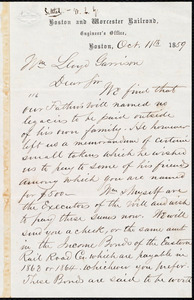 Boston and Worcester Railroad,
Engineer's Office,
Boston, Oct. 11th 1859
Wm Lloyd Garrison
Dear Sir
We find that
our Father's will named no
legacies to be paid outside
of his own family. He however
left us a memorandum of certain
small tokens which he wished
us to pay to some of his friends
Among which you are named
for $500— Wm & Myself are
the Executors of the Will and wish
to pay these sums now. We will
send you a check, or the same amt
in the Income Bonds of the Eastern
Rail Road Co. which are payable in
1862 or 1864. Whichever you prefer.
These Bonds are said to be worth